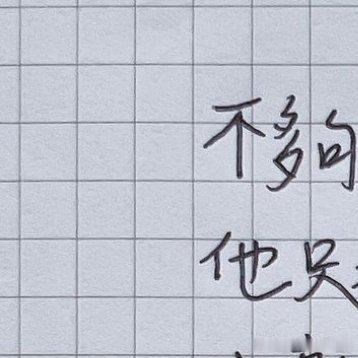 不够
他只